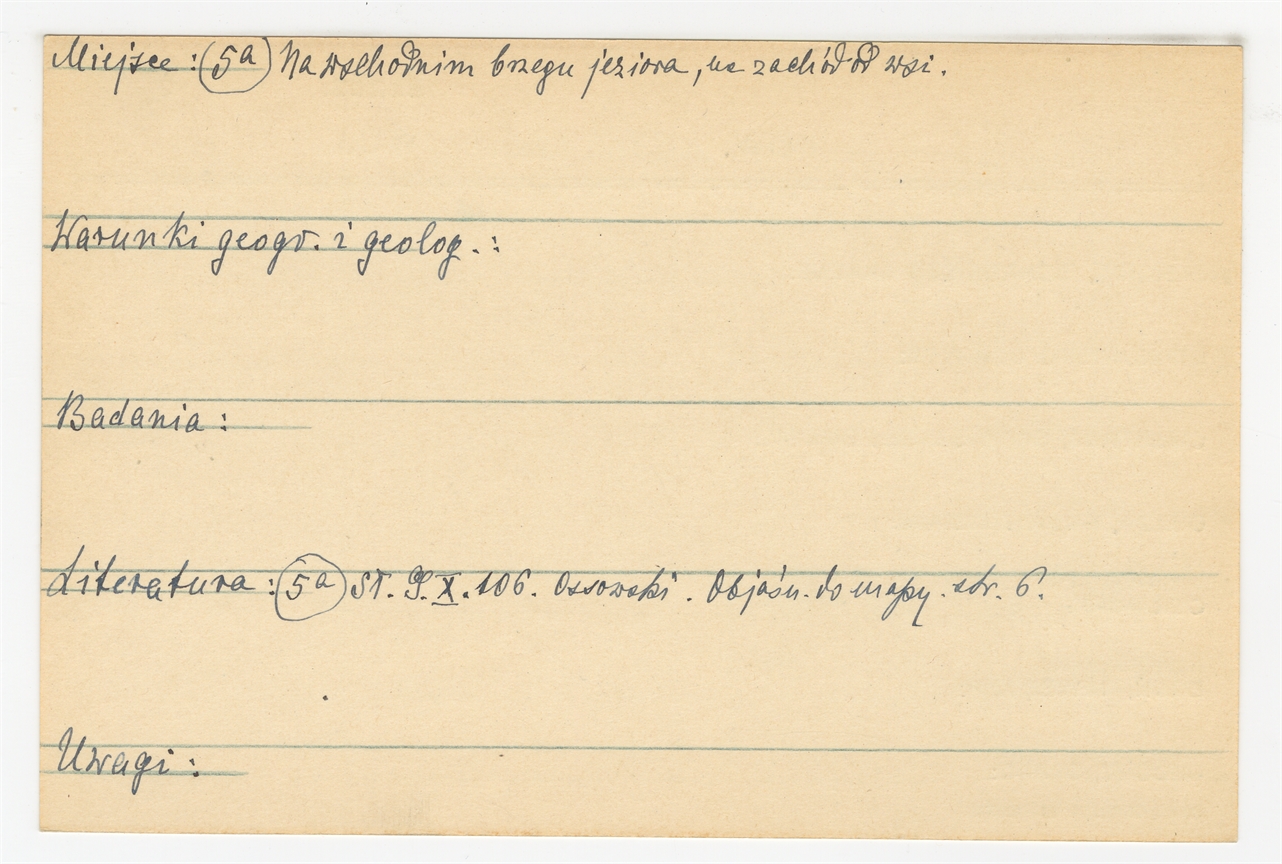 Miejsce : (5a) Na wschodnim brzegu jeziora, na zachód od wsi.
Warunki geogr. i geolog. :
Badania :
Literatura : (5a) St. G. X. 106. Ossowski. Objaśn. do mapy. str. 6.
Uwagi :